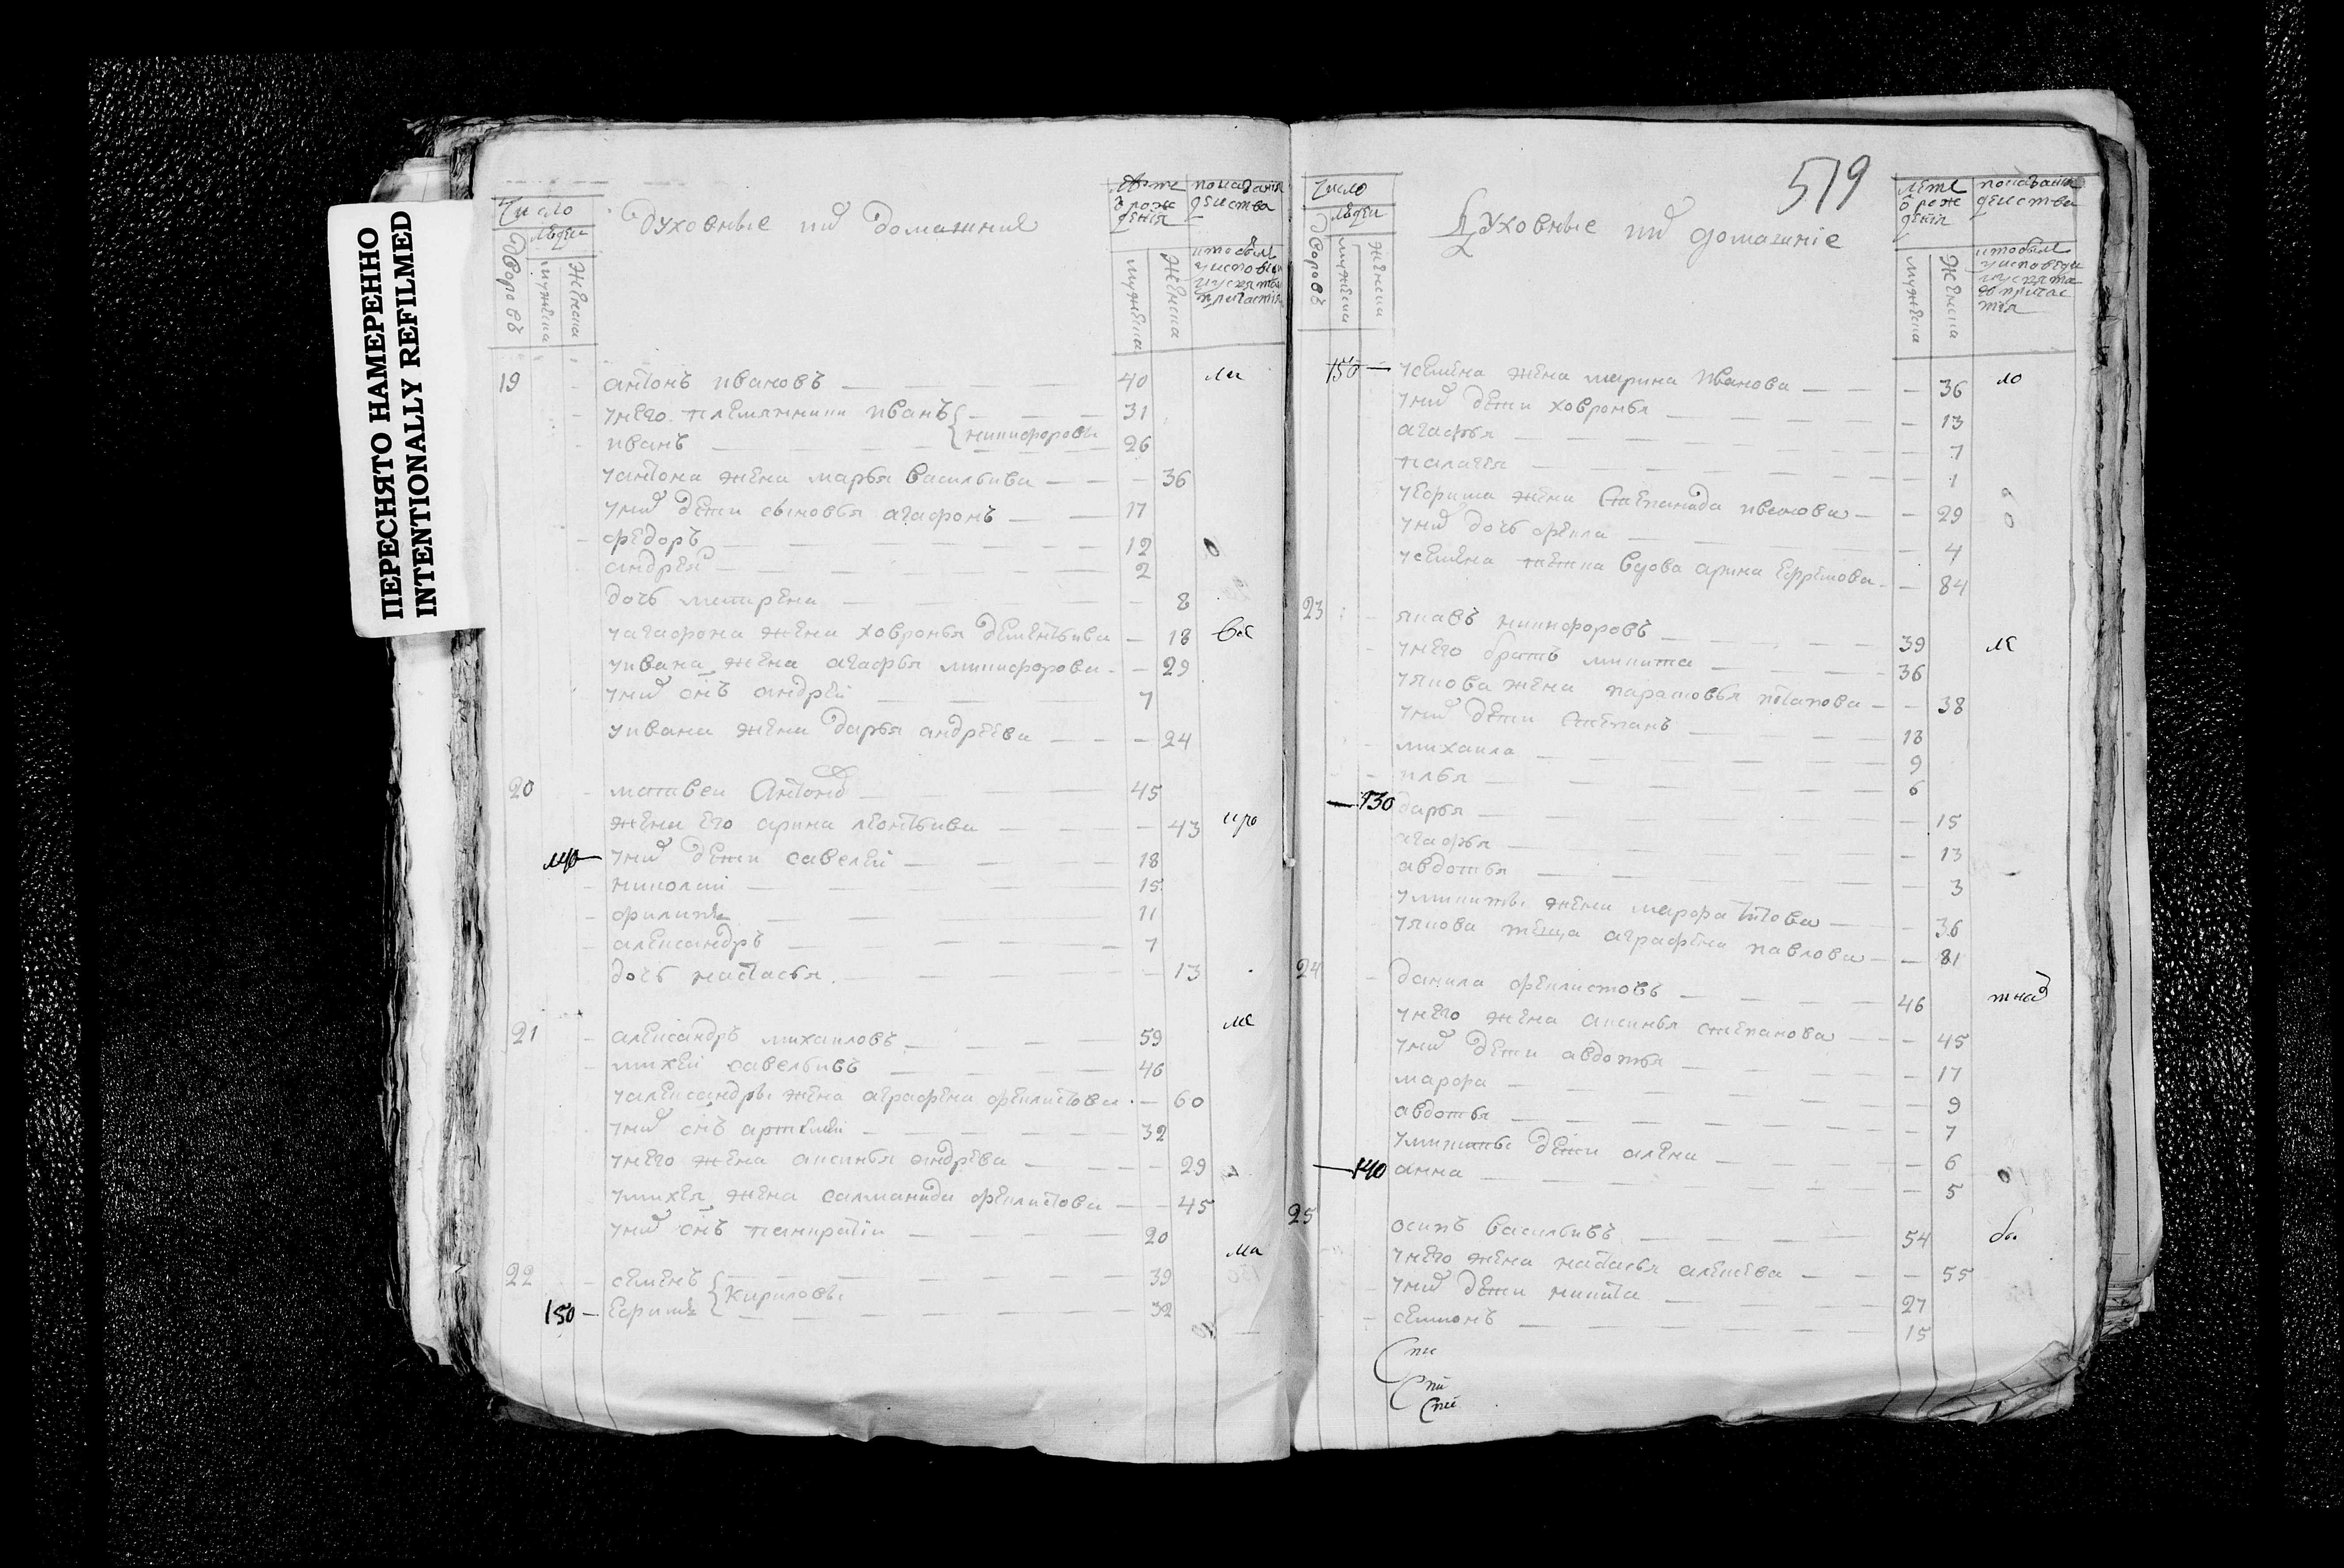 ПЕРЕСНЯТО НАМЕРЕННО
INTENTIONALLY REFILMED
Число
людеи
Дворовъ
мужеска
женска
Духовные их домашния
лѣта
о рож
дения
мужеска
женска
показания
деиства
19 антонъ ивановъ 40
унего племянники иванъ 31
иванъ никифоровы 26
уантона жена марья васильива 36
уних дети сыновья агафонъ 17
федоръ 12
андреи 2
дочь матрена 8
уагафона жена ховронья дементьива 18
уивана жена агафья никифорова 29
уних снъ андреи 7
уивана жена дарья андреева 24
20 матвеи антонов 45
жена его арина леонтьива 43
уних дети савелеи 18
николаи 15
филипъ 11
александръ 7
дочь настасья 13
21 александръ михаиловъ 59
михеи савельивъ 46
уалександры жена аграфена феклистова 60
уних снъ артемеи 32
унего жена аксинья андрева 29
умихея жена саламанида феклистова 45
уних снъ панкратіи 20
22 семенъ 39
кириловы
150 ефимъ 32
519
Число
людеи
Дворовъ
мужеска
женска
Духовные их домашніе
лѣта
о рож
дения
мужеска
женска
показания
деиства
150 усемена жена марина иванова 36
уних дети ховронья 13
агафья 7
палагея 1
уефима жена степанида иванова 29
уних дочь фекла 4
усемена вдова арина ефремова 84
23 яковъ никифоровъ 39
унего братъ никита 36
уякова жена парасковья потапова 38
уних дети степанъ 18
михаила 9
илья 6
130 дарья 15
агафья 13
авдотья 3
уникиты жена марфа титова 36
уякова теща аграфена павлова 81
24 данила феклистовъ 46
унего жена аксинья степанова 45
уних дети авдотья 17
марфа 9
авдотья 7
уникиты дети алена 6
140 анна 5
25 осипъ васильивъ 54
унего жена настасья алексева 55
уних дети никита 27
семионъ 15